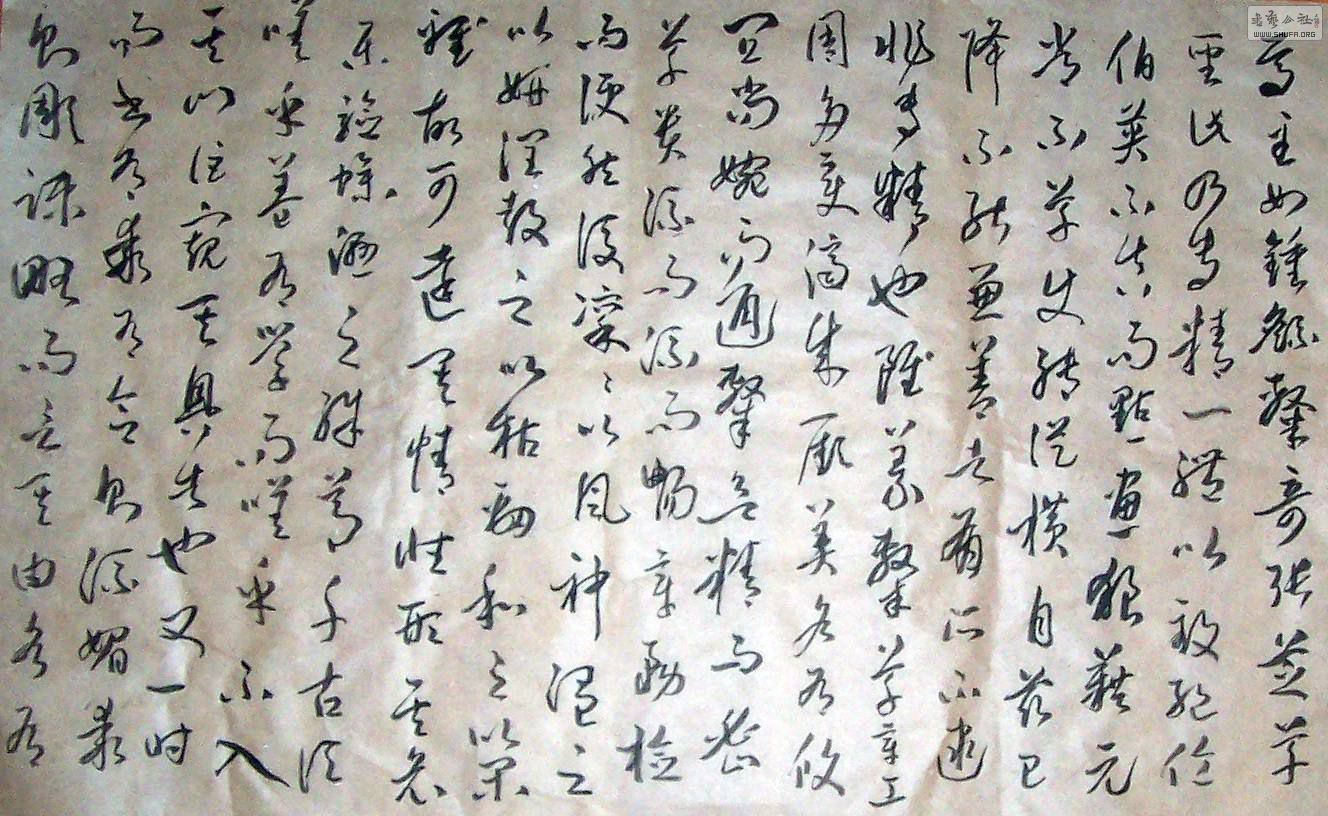 焉至如鍾繇隸奇張芝草
聖此乃專精一體以致絕倫
伯英不真而點畫狼藉元
常不草使轉縱橫自茲已
降不能兼善者有所不逮
非專精也雖篆隸草章工
用多變濟成厥美各有攸
宜尚婉而通隸欲精而密
草貴流而流而暢章務檢
而便然後凜之以風神溫之
以妍潤鼓之以枯勁和之以閑
雅故可達其情性形其哀
樂驗燥濕之殊節千古依
嗟乎蓋有學而嗟乎不入
其門詎窺其奧者也又一時
而書有乖有合則流媚乖
則彫疎略而言其由各有
書法公社
WWW.SHUFA.ORG